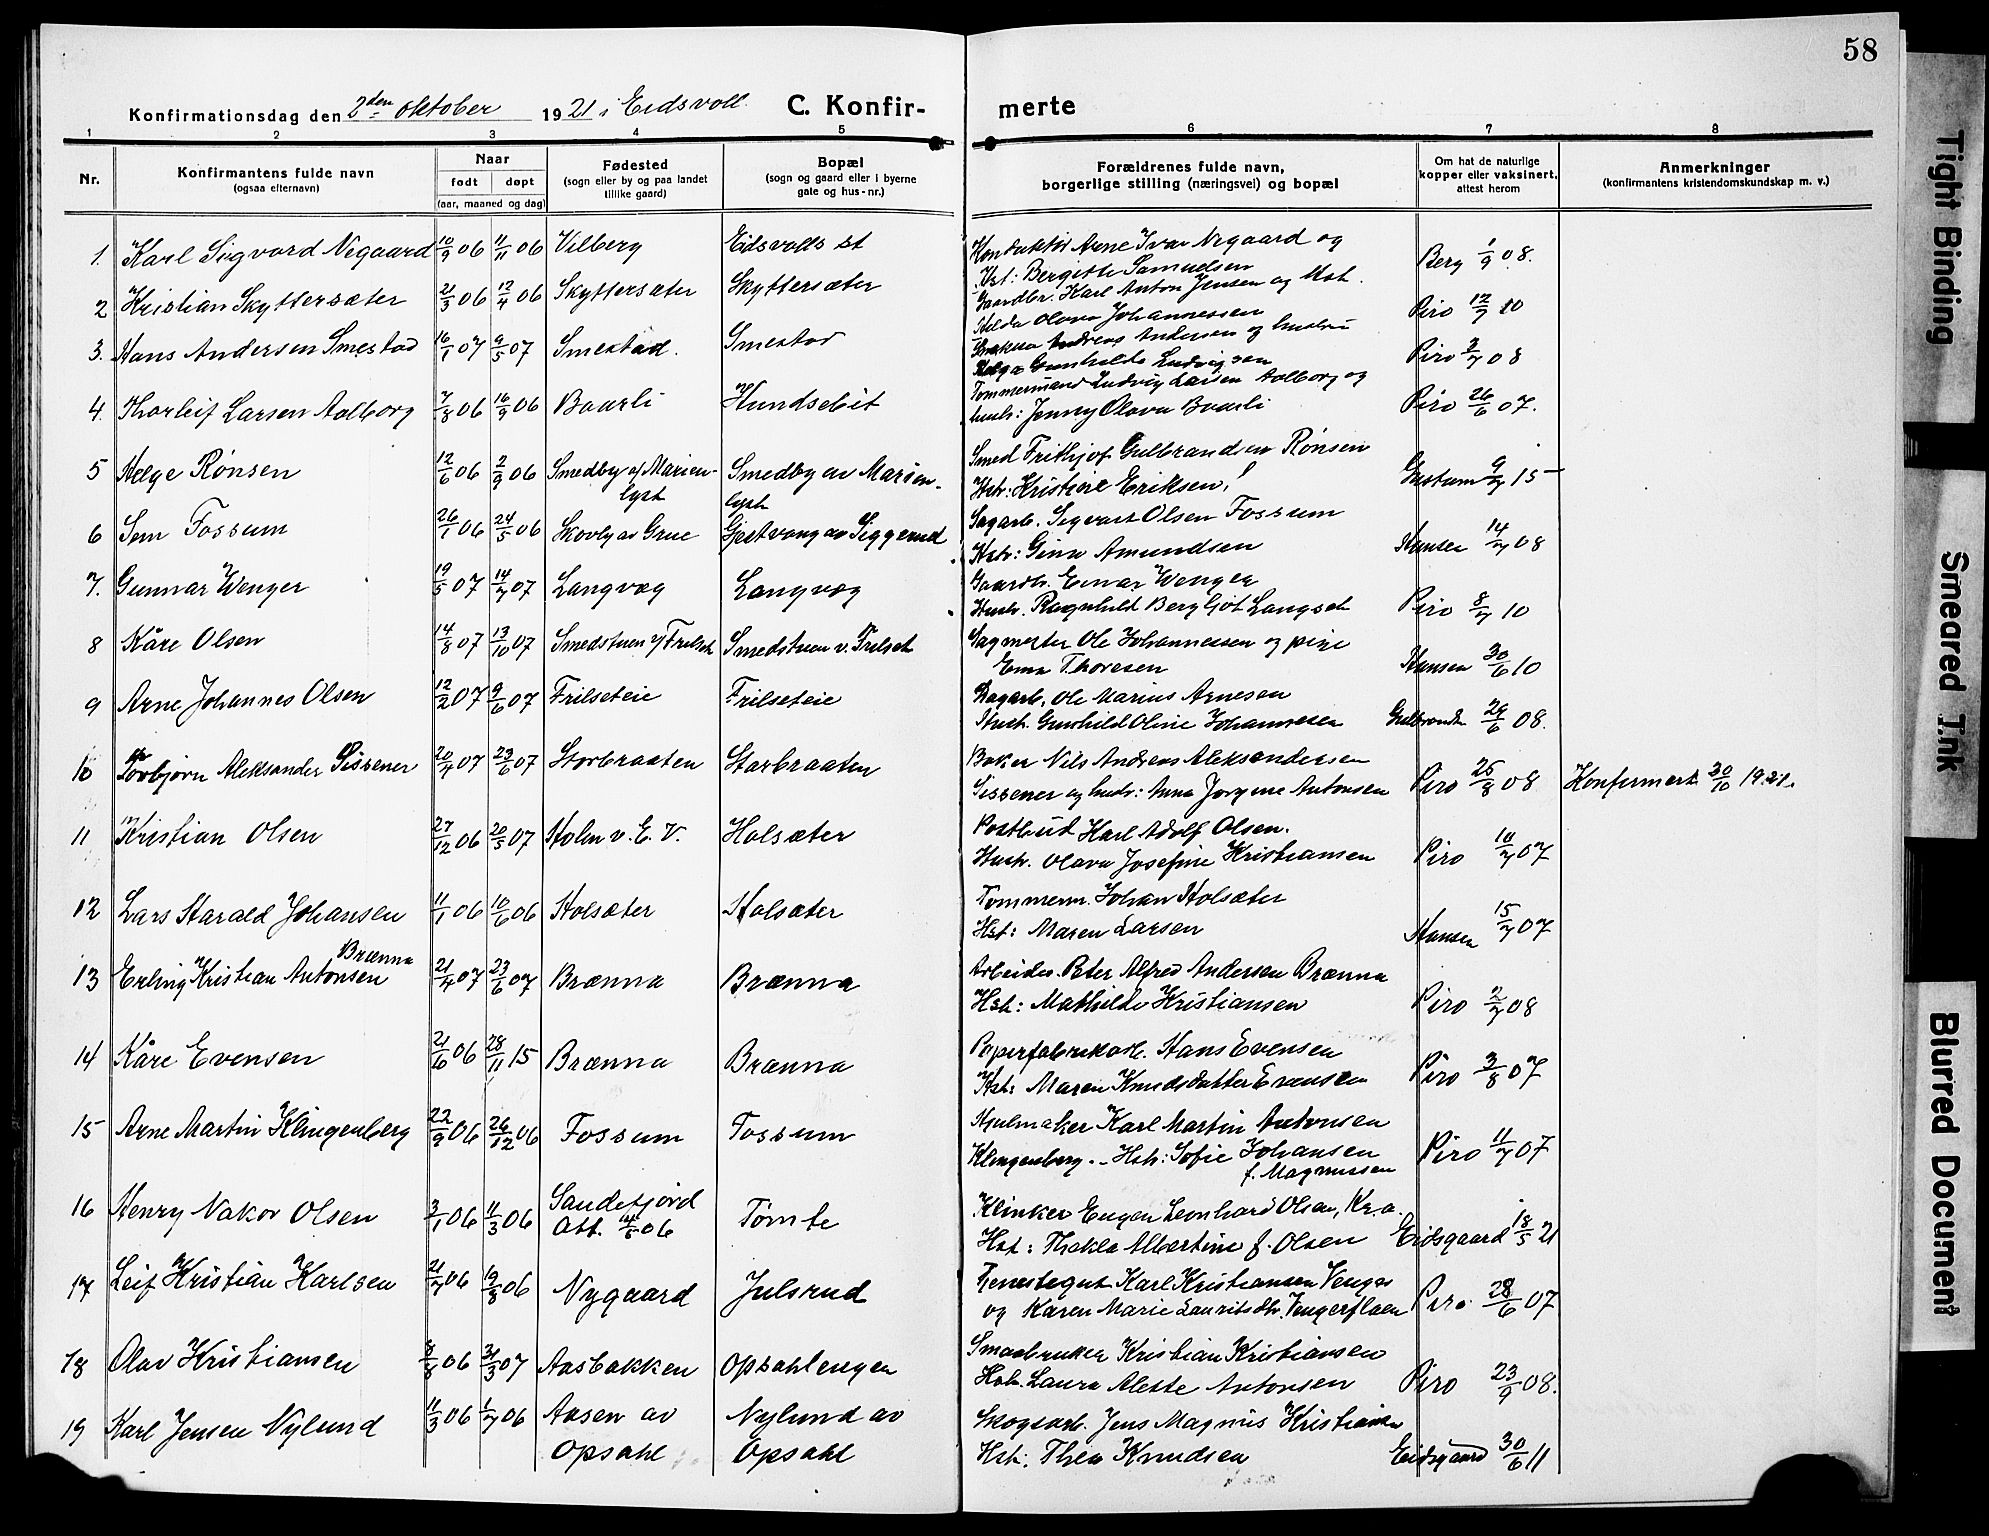 58
Konfirmationsdag den 2den oktober 1921 i Eidsvoll. C. Konfirmerte
1 2 3 4 5 6 7 8
Nr. Konfirmantens fulde navn (ogsaa efternavn) Naar født døpt (aar, maaned og dag) Fødested (sogn eller by og paa landet tillike gaard) Bopæl (sogn og gaard eller i byerne gate og hus-nr.) Forældrenes fulde navn, borgerlige stilling (næringsvei) og bopæl Om hat de naturlige kopper eller vaksinert, attest herom Anmerkninger (konfirmantens kristendomskundskap m. v.)
1. Karl Sigvard Negaard 10/9 06 11/11 06 Vilberg Eidsvolls st Konduktør Arne Ivar Negaard og
Hst: Bergette Samuelsen Berg 1/9 08.
2 Kristian Skyttersæter 21/3 06 12/4 06 Skyttersæter Skyttersæter Gaardbr. Karl Anton Jensen og Hst.
Hilda Olava Johannessen Piro 12/7 10
3. Hans Andersen Smestad 16/1 07 9/5 07 Smestad. Smestad Andreas Andersen og hustru
Helga Gunhilde Ludvigsen Piro 3/7 08
4. Thorleif Larsen Aalborg 7/8 06 16/9 06 Baarli Hundsebit Tømmermand Ludvig Larsen Aalborg og
hust: Jenny Olava Baarli Piro 26/6 07.
5 Helge Rønsen 12/6 06 2/9 06 Smedby af Marien- Smedby av Marien- Smed Frithjof Gulbrandsen Rønsen
lyst lyst Hst: Kristine Eriksen, 9/7 15
6 Sem Fossum 26/1 06 24/5 06 Skovly av Grue Gjestvang av Siggerud Sagarb. Sigvart Olsen Fossum
Hst: Gina Amundsen Hansen 14/7 08
7. Gunnar Wenger 19/5 07 14/7 07 Langvæg Langvæg Gaardb. Einar Wenger
Hust. Ragnhild Bergljot Langset Piro 8/7 10
8 Kåre Olsen 14/8 07 13/10 07 Smedstuen v/ Frilset Smedstuen v. Frilset Sagmester Ole Johannessen og pige
Ema Thoresen Hansen 30/6 10
9 Arne Johannes Olsen 12/2 07 9/6 07 Frilseteie Frilseteie Dagarb. Ole Marius Arnesen
Hust. Gunhild Oline Johannesen 29/6 08.
10 Torbjørn Aleksander Sissener 20/4 07 23/6 07 Storbraaten Storbraaten Baker Nils Andreas Aleksandersen
Sissener og hustr: Anna Jørgine Antonsen Piro 25/8 08 Konfirmert 30/10 1921.
11 Kristian Olsen 27/12 06 20/5 07 Holm v. E. V. Holsæter Postbud Karl Adolf Olsen.
Hust. Olava Josefine Kristiansen Piro 10/7 07
12 Lars Harald Johansen 11/1 06 10/6 06 Holsæter Holsæter Tømmerm. Johan Holsæter
Hst: Maren Larsen Hansen 15/7 07
Brænna
13 Erling Kristian Antonsen 21/4 07 23/6 07 Brænna Brænna Arbeider Peter Alfred Andersen Brænna
Hst: Mathilde Kristiansen Piro 2/7 08
14 Kåre Evensen 21/6 06 28/11 15 Brænna Brænna Papirfabrikarb. Hans Evensen
Hst: Maren Knudsdatter Evensen Piro 3/8 07
15 Arne Martin Klingenberg 22/9 06 26/12 06 Fossum Fossum Hjulmaker Karl Martin Antonsen
Klingenberg. - Hst: Sofie Johansen Piro 11/7 07
f. Magnussen
16 Henry Nakor Olsen 3/1 06 11/3 06 Sandefjord Tømte Klinker Eugen Leonhard Olsen, Kr.a.
Att. 14/5 06 Hst: Thekla Albertine f. Olsen Eidsgaard 18/5 21
17 Leif Kristian Karlsen 21/7 06 19/8 06 Nygaard Julsrud Tjenestegut Karl Kristiansen Venger
og Karen Marie Lauritsdtr. Vengerflaen Piro 28/6 07
18 Olav Kristiansen 3/8 06 31/3 07 Aasbakken Opsahlengen Smaabruker Kristian Kristiansen
Hst. Laura Alette Antonsen Piro 23/9 08.
19 Karl Jensen Nylund 11/3 06 1/7 06 Aasen av Nylund av Skogsarb. Jens Magnus Kristiansen
Opsahl Opsahl Hst: Thea Knudsen Eidsgaard 30/6 11
Tight Binding
Smeared Ink
Blurred Document